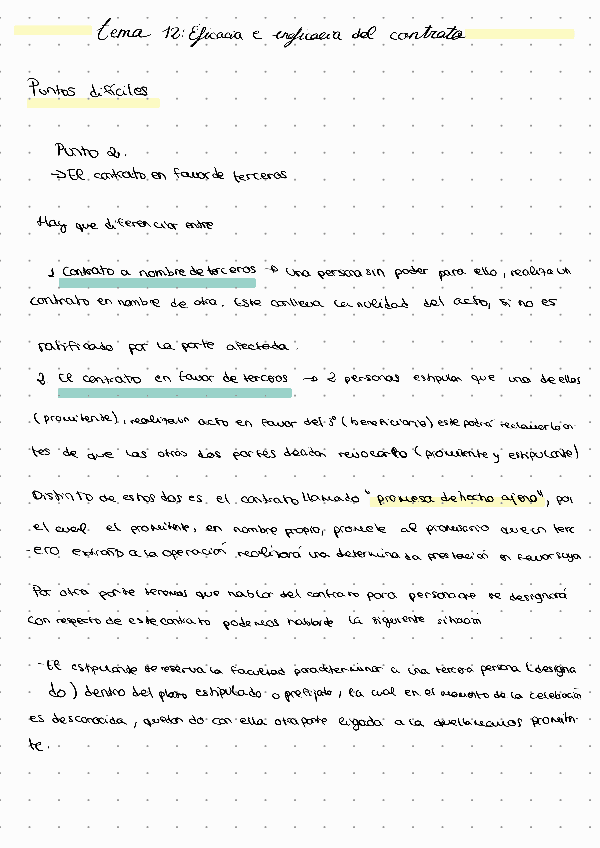 tema 12: Eficacia e ineficacia del contrato
Puntos difíciles
Punto 2.
→ El contrato en favor de terceros
Hay que diferenciar entre
1 Contrato a nombre de terceros → una persona sin poder para ello, realiza un
contrato en nombre de otra. Este conlleva la nulidad del acto, si no es
ratificado por la parte afectada.
2 El contrato en favor de terceros → 2 personas estipulan que una de ellas
(promitente), realiza un acto en favor del 3º (beneficiario) este podrá reclamarlo an
tes de que las otras dos partes decidan revocarlo (promitente y estipulante)
Distinto de estos dos es el contrato llamado "promesa de hecho ajeno", por
el cual el promitente, en nombre propio, promete al promisario que un terc
-ero extraño a la operación realizará una determinada prestación en favor suya
Por otra parte tenemos que hablar del contrato para persona que se designará
Con respecto de este contrato podemos hablar de la siguiente situación
- El estipulante se reserva la facultad para determinar a una tercera persona (designa
do) dentro del plazo estipulado o prefijado, la cual en el momento de la celebración
es desconocida, quedando con ella otra parte ligada a la promiten-
te.